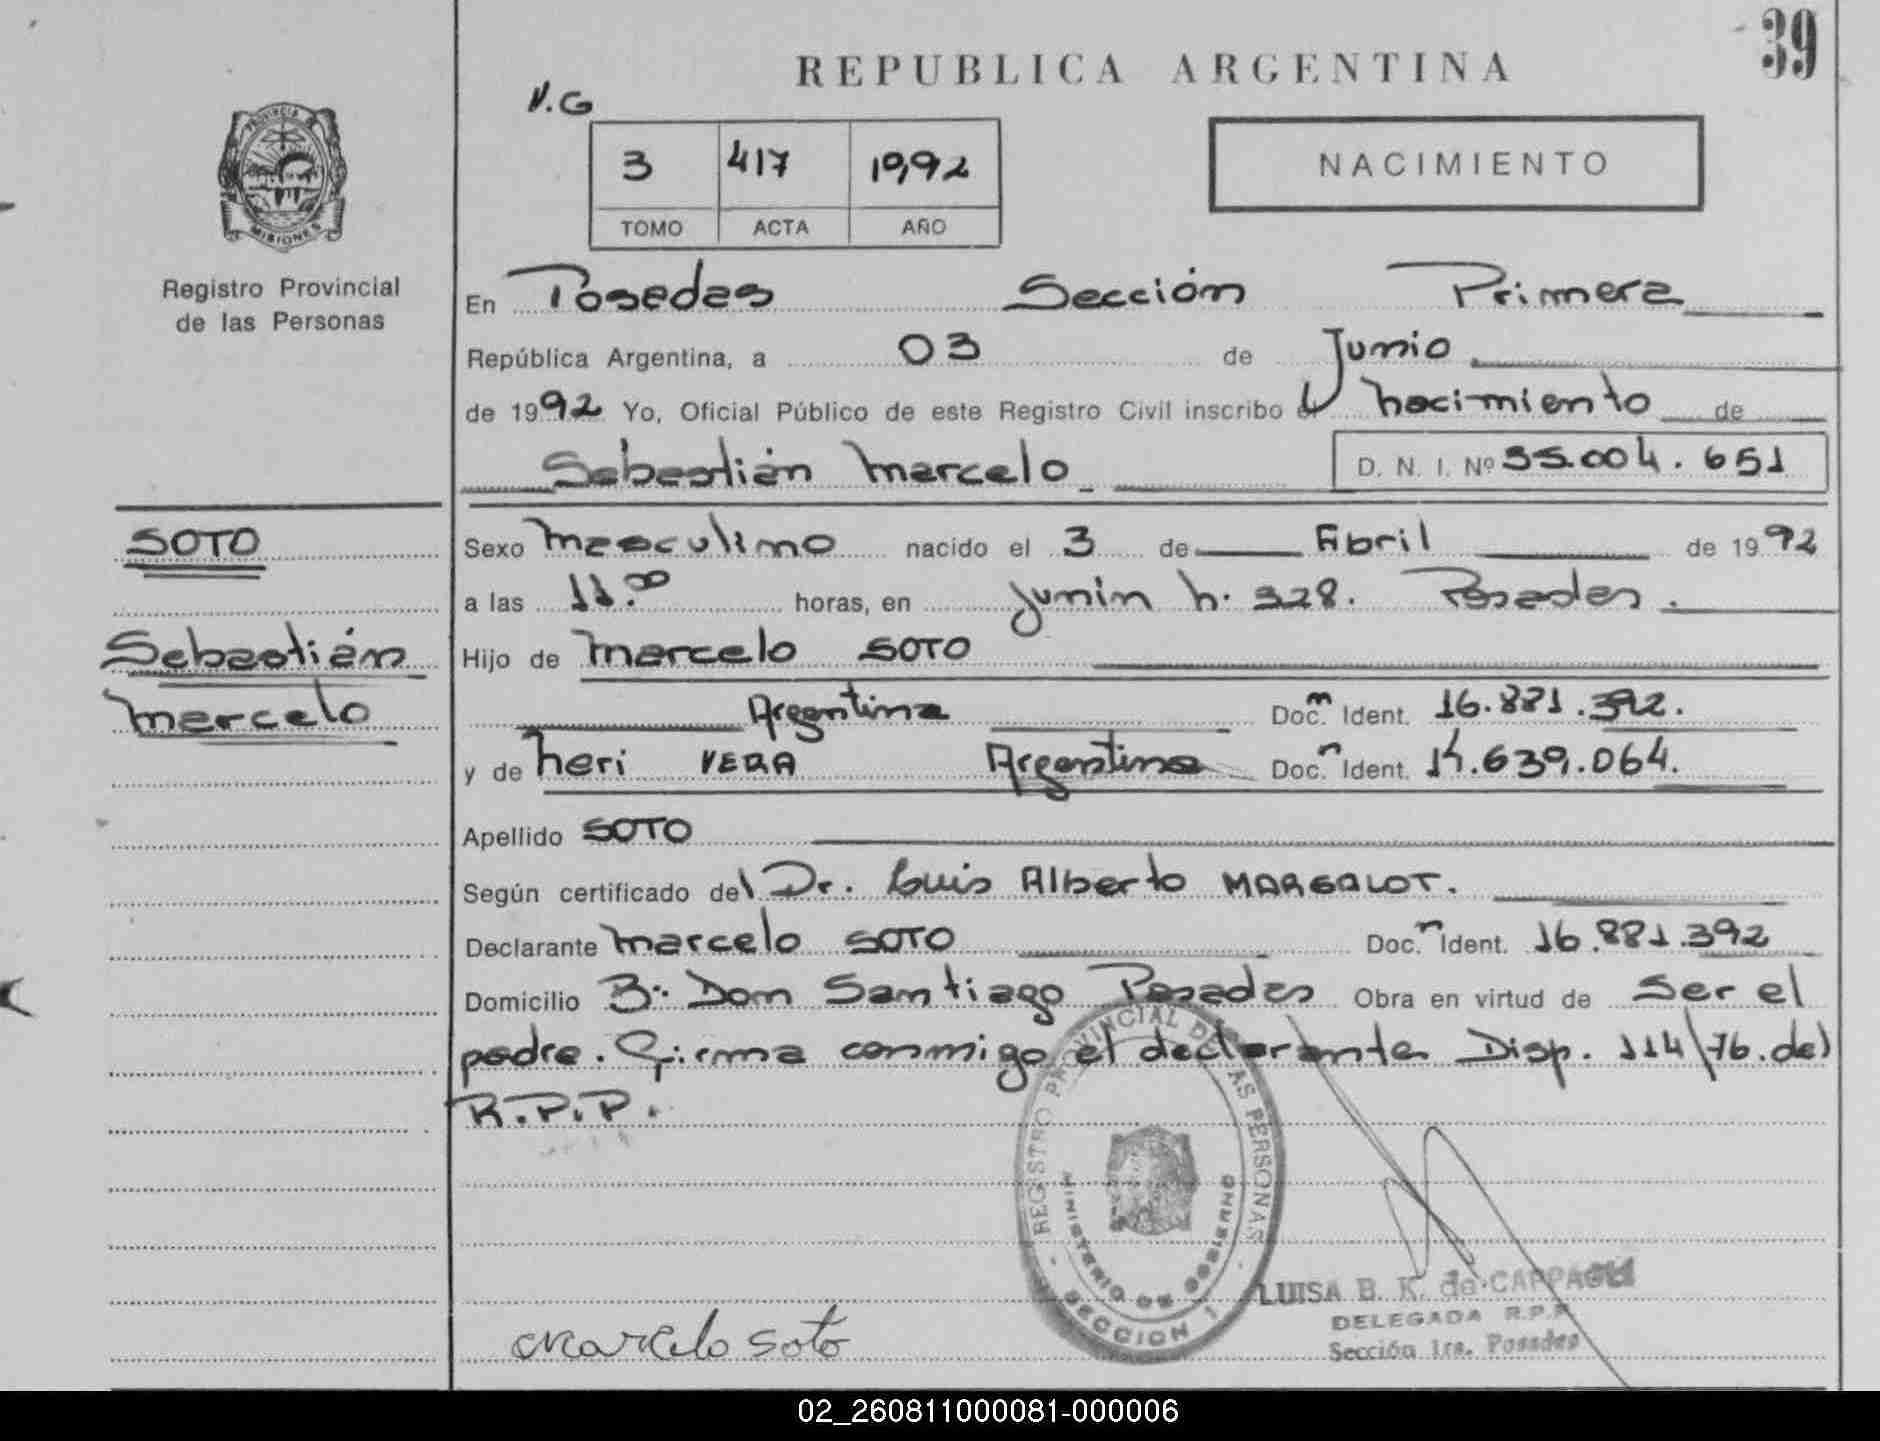 39
REPUBLICA ARGENTINA
N.G
3 417 1992
TOMO ACTA AÑO
NACIMIENTO
PROVINCIA DE
MISIONES
Registro Provincial
de las Personas
En Posadas Sección Primera
República Argentina, a 03 de Junio
de 1992 Yo, Oficial Público de este Registro Civil inscribo el nacimiento de
Sebastián Marcelo D. N. I. Nº 35.004.651
SOTO
Sebastián
Marcelo
Sexo Masculino nacido el 3 de Abril de 1992
a las 11.00 horas, en Junin N. 328. Posadas.
Hijo de Marcelo SOTO
Argentina Doc. Ident. 16.881.392.
y de Neri VERA Argentina Doc. Ident. 14.639.064.
Apellido SOTO
Según certificado del Dr. Luis Alberto MARGALOT.
Declarante Marcelo SOTO Doc. Ident. 16.881.392
Domicilio Bº. Don Santiago Posadas Obra en virtud de Ser el
padre. Firma conmigo el declarante Disp. 114/76. del
R.P.P.
REGISTRO PROVINCIAL DE LAS PERSONAS
MINISTERIO DE GOBIERNO
SECCION 1
LUISA B. K. de CAPPAGLI
DELEGADA R.P.P.
Sección 1ra. Posadas
Marcelo Soto
02_260811000081-000006